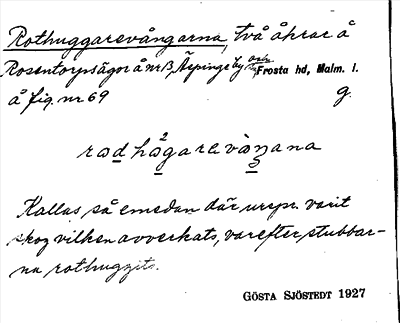 Rothuggarevångarna, två åkrar å
Rosentorpsägor å nr 13, Äspinge by Frosta hd, Malm. l.
å fig. nr 69 g.
Kallas så emedan där urspr. varit
skog vilken avverkats, varefter stubbar-
na rothuggits.
GÖSTA SJÖSTEDT 1927